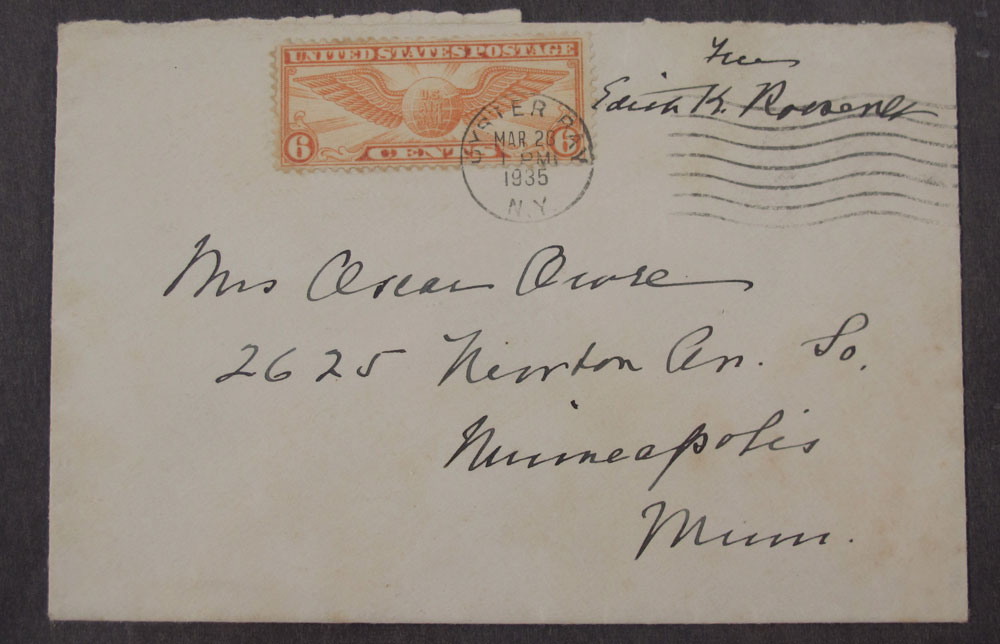 UNITED STATES POSTAGE
U.S.
AIR
MAIL
6 CENTS 6
OYSTER BAY
MAR 26
1 PM
1935
N.Y.
Free
Edith K. Roosevelt
Mrs Oscar Owre
2625 Newton Av. So.
Minneapolis
Minn.